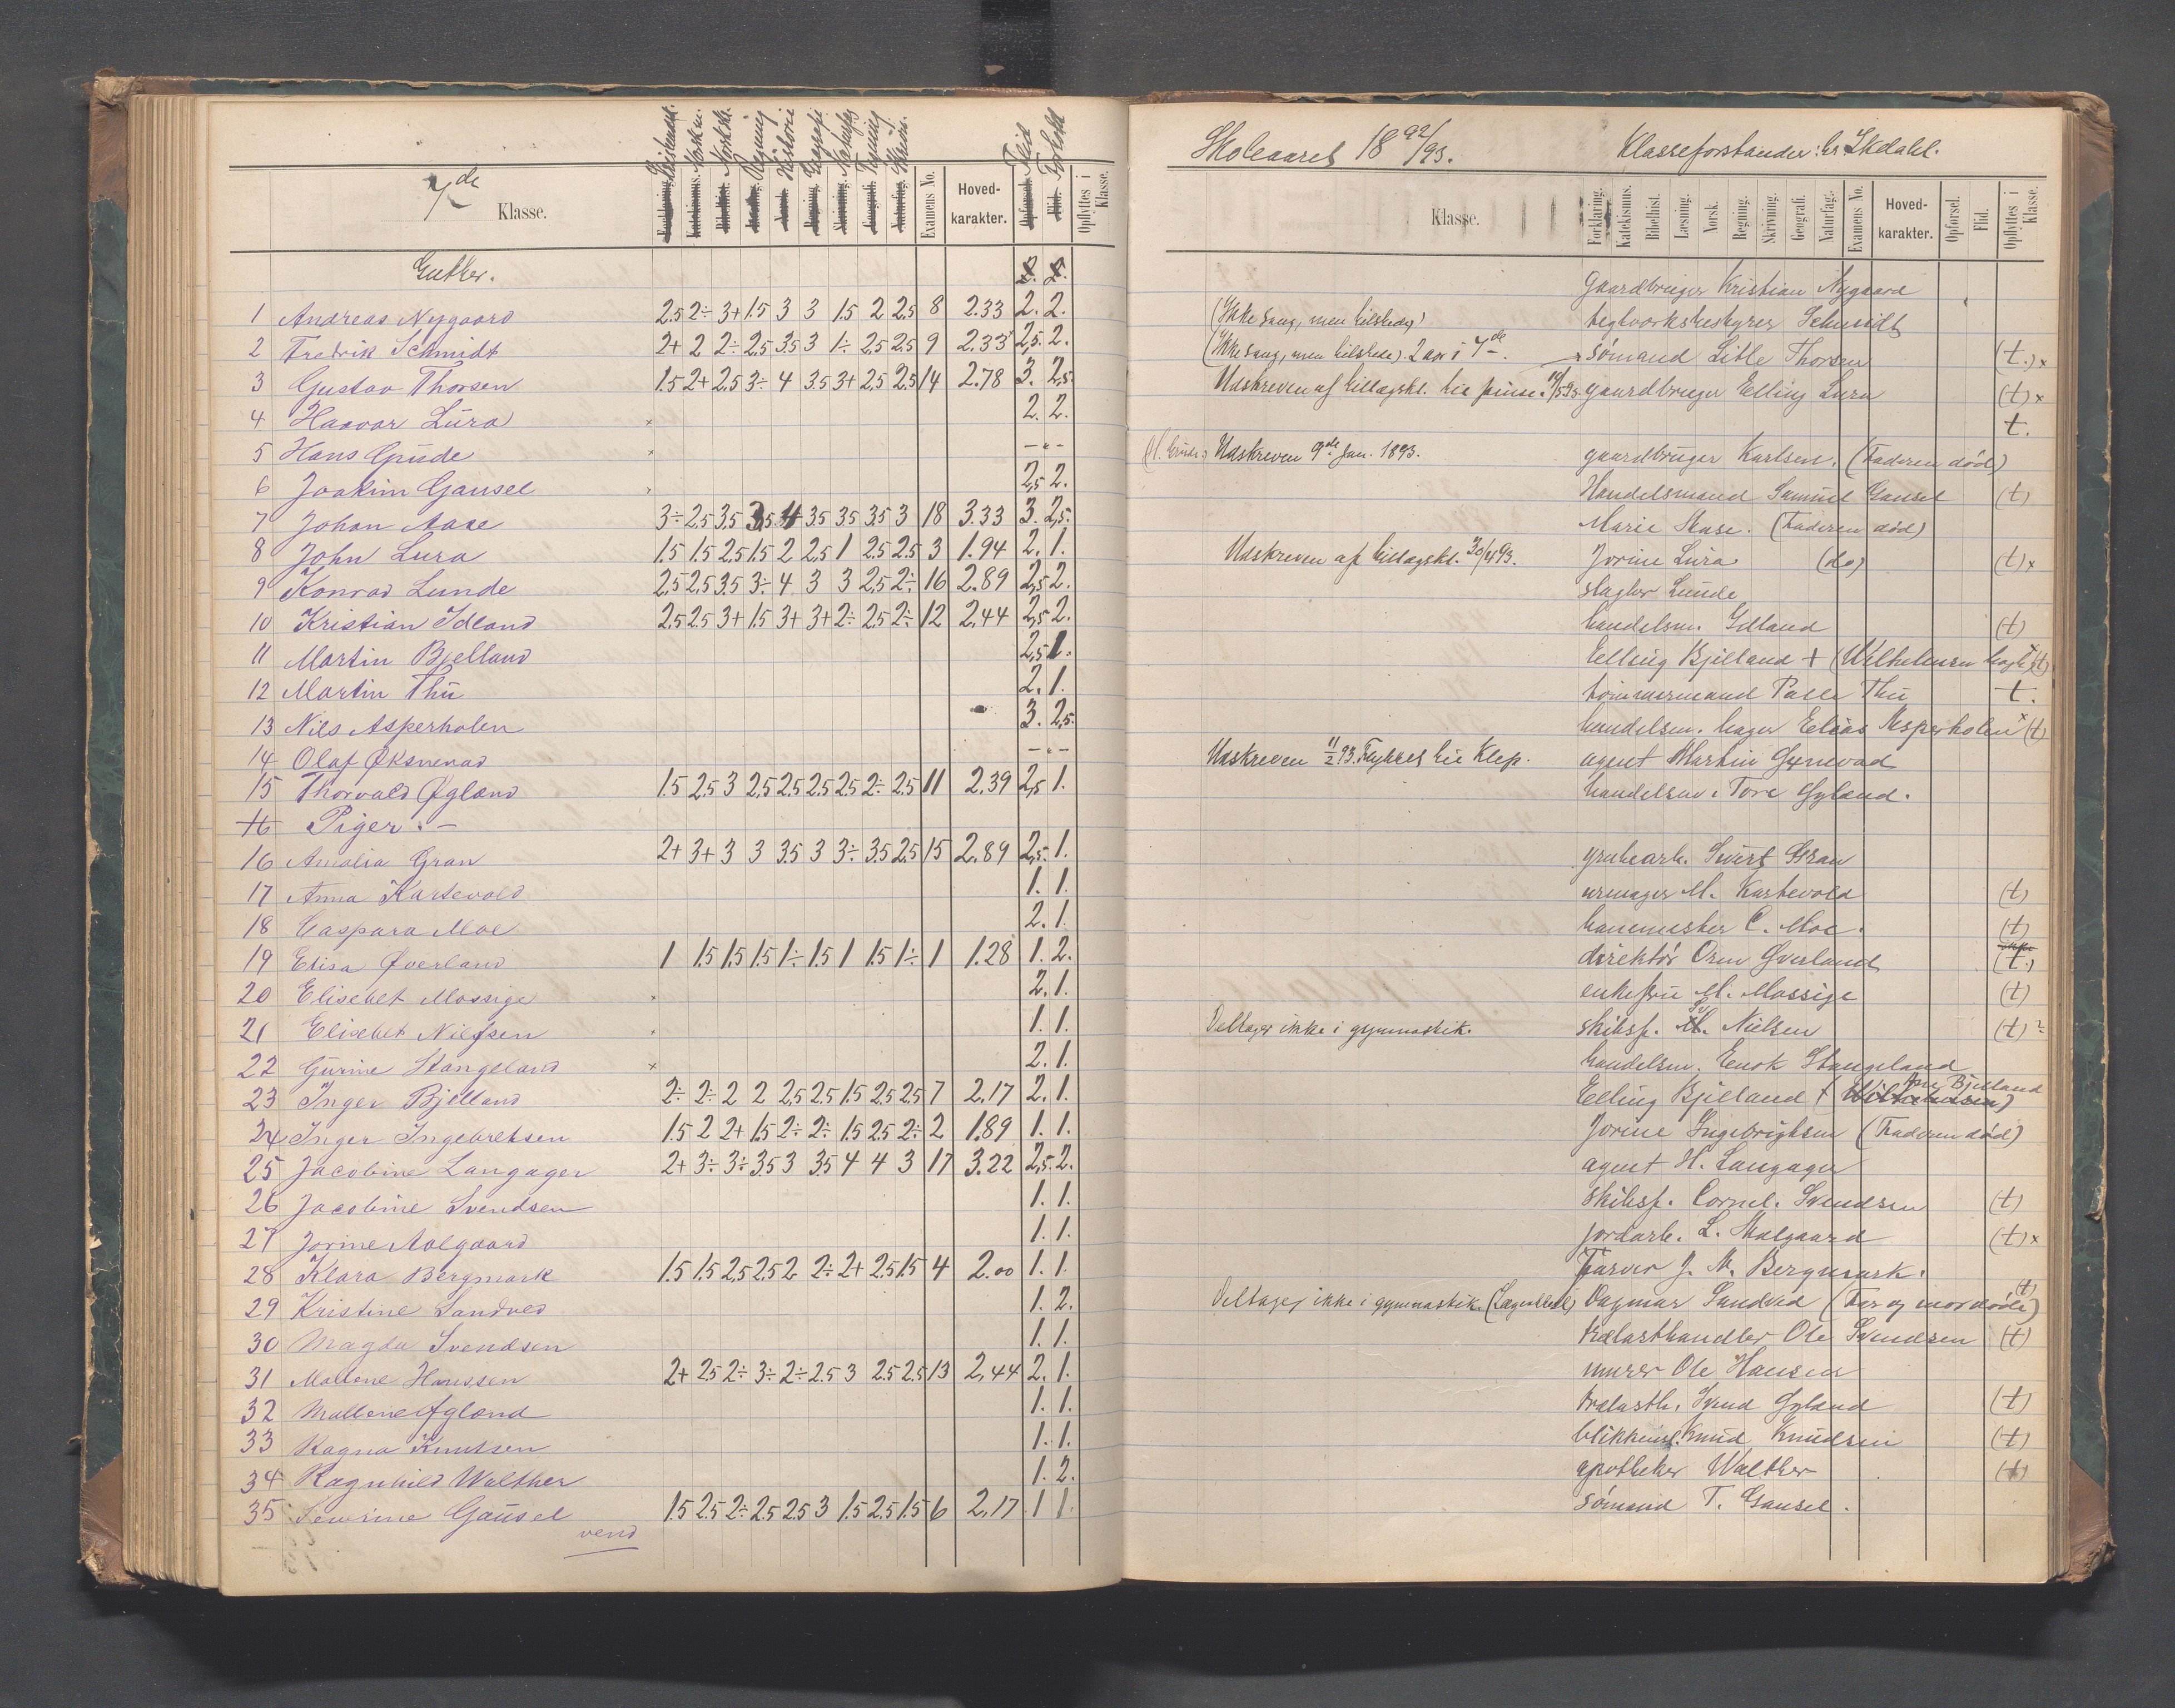 7de Klasse. Examens No. Hoved-karakter. Flid Forhold Opflyttes i Klasse.
Gutter. 2. 2.
1 Andreas Nygaard 2.5 2÷ 3+ 1.5 3 3 1.5 2 2.5 8 2.33 2. 2.
2 Fredrik Schmidt 2+ 2 2÷ 2.5 3.5 3 1÷ 2.5 2.5 9 2.33 2,5. 2.
3 Gustav Thorsen 1.5 2+ 2.5 3÷ 4 3.5 3+ 2.5 2.5 14 2.78 3. 2,5.
4 Haavar Lura × 2. 2.
5 Hans Gude × – „ –
6 Joakim Gausel 2,5 2.
7 Johan Aase 3÷ 2.5 3.5 3.5 4 3.5 3.5 3.5 3 18 3.33 3. 2,5.
8 John Lura 1.5 1.5 2.5 1.5 2 2.5 1 2.5 2.5 3 1.94 2. 1.
9 Konrad Lunde 2.5 2.5 3.5 3÷ 4 3 3 2.5 2÷ 16 2.89 2,5 2.
10 Kristian Idland 2.5 2.5 3+ 1.5 3+ 3+ 2÷ 2.5 2÷ 12 2.44 2,5 2.
11 Martin Bjelland 2,5 1.
12 Martin Thu 2. 1.
13 Nils Asperholen 3. 2,5.
14 Olaf Øksnevad – „ –
15 Thorvald Øgland 1.5 2.5 3 2.5 2.5 2.5 2.5 2÷ 2.5 11 2.39 2,5 1.
16 Piger. –
16 Amalia Gran 2+ 3+ 3 3 3.5 3 3÷ 3.5 2.5 15 2.89 2,5. 1.
17 Anna Kartevold 1. 1.
18 Caspara Moe 2. 1.
19 Elisa Øverland 1 1.5 1.5 1.5 1÷ 1.5 1 1.5 1÷ 1 1.28 1. 2.
20 Elisebet Mossige × 2. 1.
21 Elisebet Nielsen × 1. 1.
22 Gurine Stangeland × 2. 1.
23 Inger Bjelland 2÷ 2÷ 2 2 2.5 2.5 1.5 2.5 2.5 7 2.17 2. 1.
24 Inger Ingebretsen 1.5 2 2+ 1.5 2÷ 2÷ 1.5 2.5 2÷ 2 1.89 1. 1.
25 Jacobine Langager 2+ 3÷ 3÷ 3.5 3 3.5 4 4 3 17 3.22 2,5. 2.
26 Jacobine Svendsen 1. 1.
27 Jorine Aalgaard 1. 1.
28 Klara Bergmark 1.5 1.5 2.5 2.5 2 2÷ 2+ 2.5 1.5 4 2.00 1. 1.
29 Kristine Sandved 1. 2.
30 Magda Svendsen 1. 1.
31 Mallene Hanssen 2+ 2.5 2÷ 3÷ 2÷ 2.5 3 2.5 2.5 13 2,44 2. 1.
32 Mallene Øgland 1. 1.
33 Ragna Knutsen 1. 1.
34 Ragnhild Walther 1. 2.
35 Severine Gausel 1.5 2.5 2÷ 2.5 2.5 3 1.5 2.5 1.5 6 2.17 1 1.
vend
Skoleaaret 1892/93. Klasseforstander: hr. Skdahl.
Klasse. Forklaring. Katekismus. Bibelhist. Læsning. Norsk. Regning. Skrivning. Geografi. Naturfag. Examens No. Hoved-karakter. Opførsel. Flid. Opflyttes i Klasse.
gaardbruger Kristian Nygaard
(Ikke sang, men tilstede) teglverksbestyrer Schmidt
(Ikke sang, men tilstede). 2 aar i 7de. sømand Litle Thorsen (t.) ×
Udskreven af tillægskl. til pinse. gaardbruger Elling Lura (t) ×
t.
Udskreven 9de Jan. 1893. gaardbruger Karlsen. (Faderen død)
Handelsmand Samuel Gausel (t)
Marie Aase. (Faderen død)
Udskreven af tillægskl. 30/4 93. Jorine Lura (do) (t) ×
slagter Lunde
handelsm. Idland (t)
Elling Bjelland + (t)
tømmermand Palle Thu t.
handelsm. Elias Asperholen × (t)
Udskreven 11/2 93. Flyttet til Klep. agent Martin Øxnevad
handelsm. Tore Øgland.
grubearb. Sivert Gran
urmager M. Kartevold (t)
C. Moe. (t)
direktør Orm Øverland (t.)
enkefru M. Mossige (t)
Deltager ikke i gymnastik. skibsf. Nielsen (t) ?
handelsm. Enok Stangeland
Elling Bjelland + Bjelland
Jorine Ingebrigtsen (Faderen død)
agent H. Langager
skibsf. Cornel. Svendsen (t)
jordarb. L. Aalgaard (t) ×
Farver J. M. Bergmark.
Deltager ikke i gymnastik. Dagmar Sandved (Far og mor døde) (t)
trælasthandler Ole Svendsen (t)
murer Ole Hansen
trælasth. Svend Øgland (t)
blikkensl. Knud Knudsen (t)
apotheker Walther (t)
sømand T. Gausel.